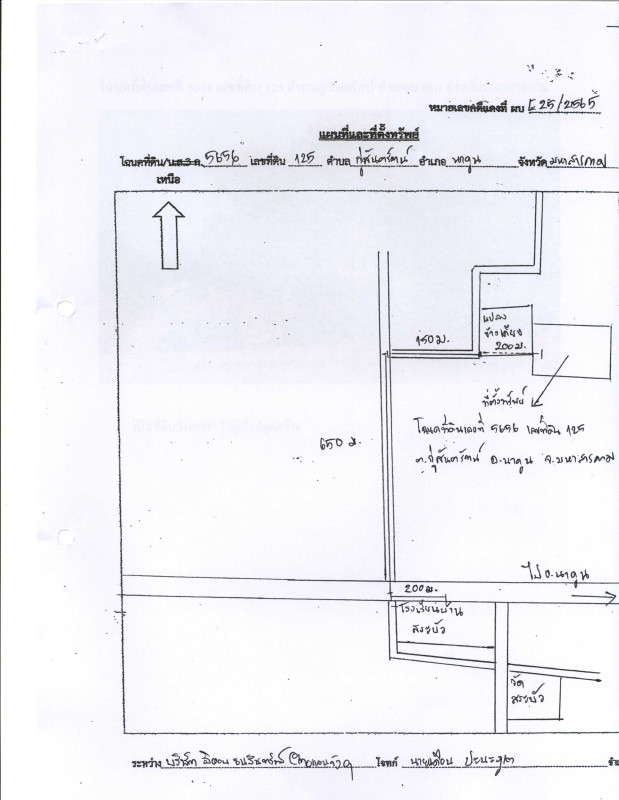 หมายเลขคดีแดงที่ ผบ E25/2565
แผนที่และที่ตั้งทรัพย์
โฉนดที่ดิน/น.ส.3 ก. 5656 เลขที่ดิน 125 ตำบล กู่สันตรัตน์ อำเภอ นาดูน จังหวัด มหาสารคาม
เหนือ
แปลง
ข้างเคียง
200ม.
150ม.
ที่ตั้งทรัพย์
โฉนดที่ดินเลขที่ 5656 เลขที่ดิน 125
ต.กู่สันตรัตน์ อ.นาดูน จ.มหาสารคาม
650ม.
ไป อ.นาดูน
200ม.
โรงเรียนบ้าน
สระบัว
วัด
สระบัว
ระหว่าง บริษัท โจทก์